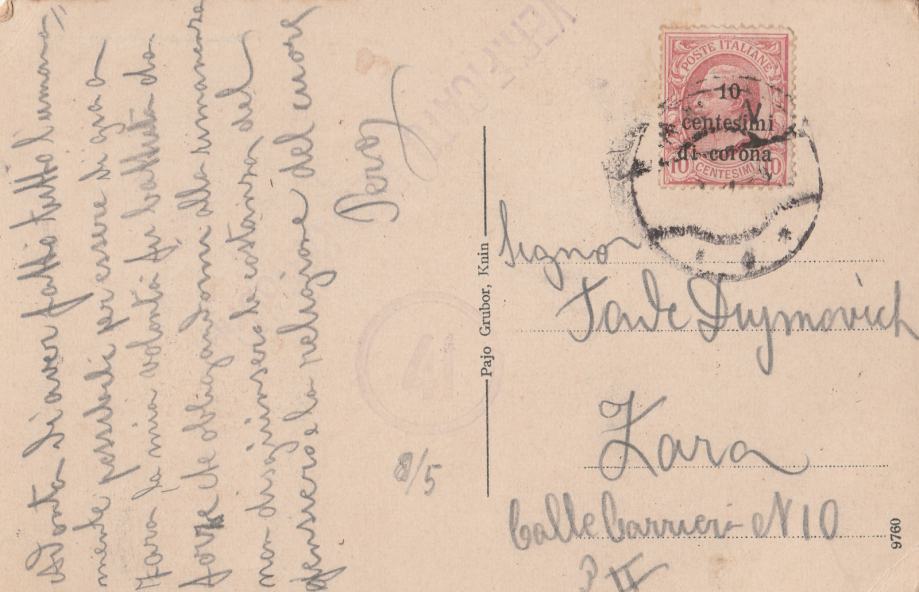 Ad onta di aver fatto tutto l'umana,,
mente possibile per essere di già a
Zara la mia volontà fu battuta da
forze che obbligandomi alla rimanenza
non disgiunsero la costanza del
pensiero e la religione del cuore
Pero
8/5
VERIFICATO
41
Pajo Grubor, Knin
POSTE ITALIANE
10
centesimi
di corona
10 CENTESIMI 10
Signor
Dujmovich
Zara
Calle Carriera N 10
9760